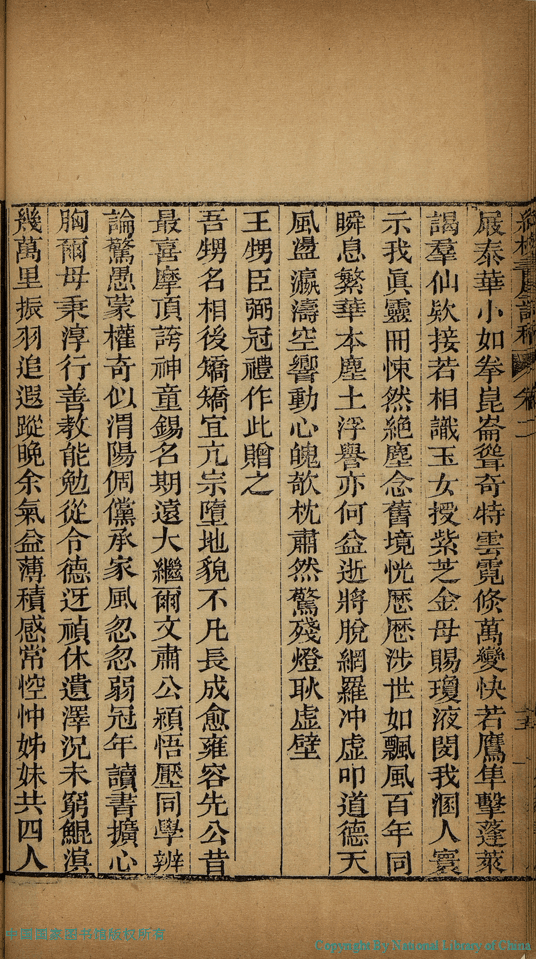 卷二
屐泰華小如拳崑崙聳奇特雲霓倏萬變快若鷹隼擊蓬萊
謁羣仙欵接若相識玉女授紫芝金母賜瓊液閔我溷人寰
示我眞靈冊悚然絶塵念舊境恍歷歷涉世如飄風百年同
瞬息繁華本塵土浮譽亦何益逝將脫網羅冲虛叩道德天
風盪瀛濤空響動心魄欹枕肅然驚殘燈耿虛壁
王甥臣弼冠禮作此贈之
吾甥名相後矯矯宜亢宗墮地貌不凡長成愈雍容先公昔
最喜摩頂誇神童錫名期遠大繼爾文肅公穎悟壓同學辨
論驚愚蒙權奇似渭陽倜儻承家風忽忽弱冠年讀書擴心
胸爾母秉淳行善教能勉從令德迓禎休遺澤況未窮鯤溟
幾萬里振羽追遐蹤晚余氣益薄積感常悾忡姊妹共四人
中国国家图书馆版权所有
Copyright By National Library of China